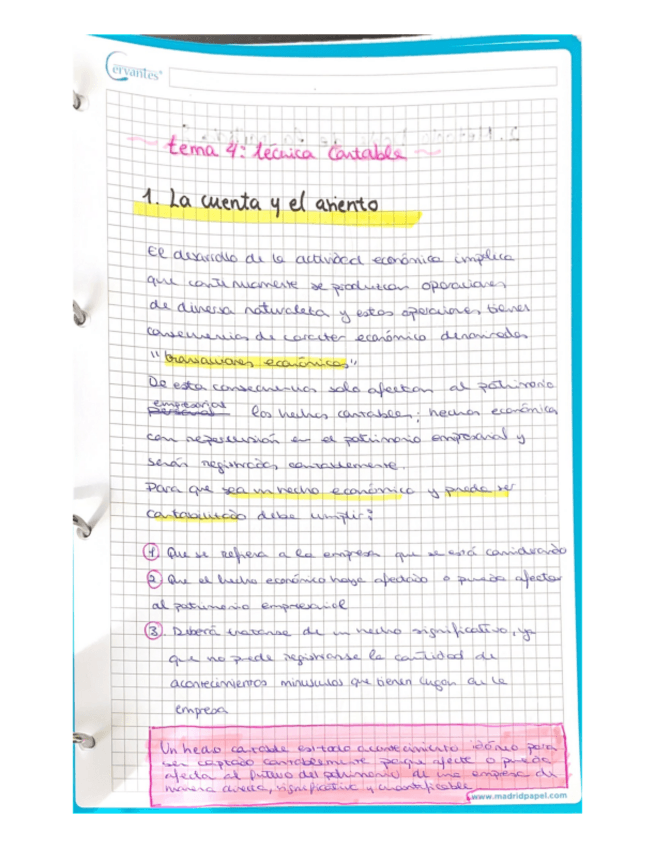 Cervantes
~ tema 4: técnica Contable ~
1. La cuenta y el asiento
El desarrollo de la actividad económica implica
que continuamente se produzcan operaciones
de diversa naturaleza y estas operaciones tienen
consecuencias de carácter económico denominadas
"transacciones económicas"
De esta consecuencias solo afectan al patrimonio
empresarial
personal los hechos contables; hechos económica
con repercusión en el patrimonio empresarial y
serán registrados contablemente.
Para que sea un hecho económico y pueda ser
contabilizado debe cumplir:
① Que se refiera a la empresa que se está considerando
② Que el hecho económico haya afectado o pueda afectar
al patrimonio empresarial
③ Deberá tratarse de un hecho significativo, ya
que no puede registrarse la cantidad de
acontecimientos minúsculos que tienen lugar en la
empresa
Un hecho contable es todo acontecimiento idóneo para
ser captado contablemente porque afecte o pueda
afecta al futuro del patrimonio de una empresa de
manera directa, significativa y cuantificable.
www.madridpapel.com